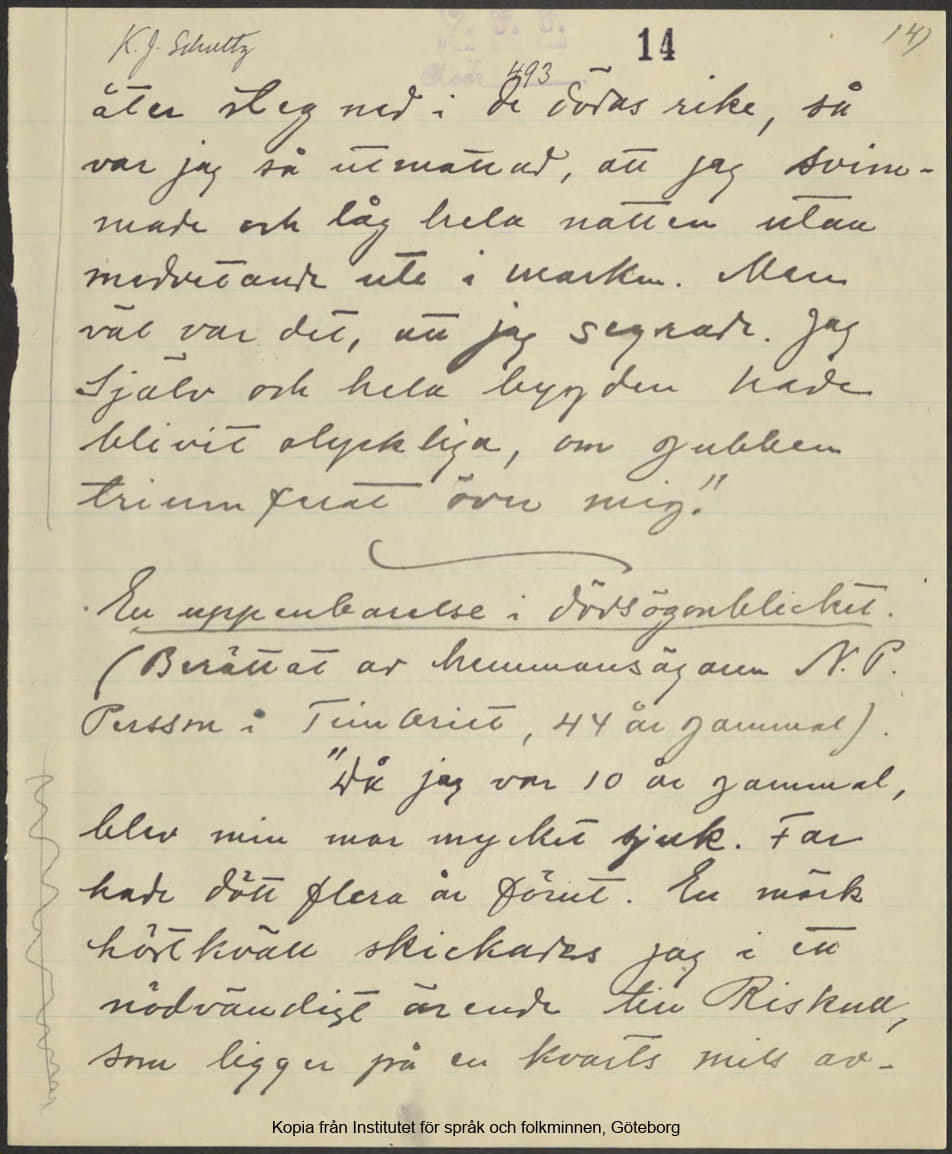 K. J. Schultz
14
14)
493
åter steg ned i de dödas rike, så
var jag så utmattad, att jag svim-
made och låg hela natten utan
medvetande ute i marken. Men
väl var det, att jag segrade. Jag
själv och hela bygden hade
blivit olyckliga, om gubben
triumferat över mig."
En uppenbarelse i dödsögonblicket.
(Berättat av hemmansägaren N. P.
Persson i , 44 år gammal).
"Då jag var 10 år gammal,
blev min mor mycket sjuk. Far
hade dött flera år förut. En mörk
höstkväll skickades jag i ett
nödvändigt ärende till Riskull,
som ligger på en kvarts mils av-
Kopia från Institutet för språk och folkminnen, Göteborg